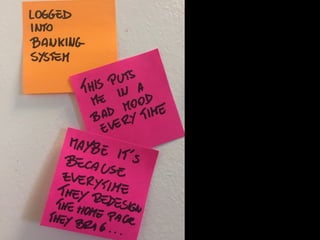 LOGGED
INTO
BANKING
SYSTEM
THIS PUTS
ME IN A
BAD MOOD
EVERY TIME
MAYBE IT'S
BECAUSE
EVERYTIME
THEY REDESIGN
THE HOME PAGE
THEY BRAG...